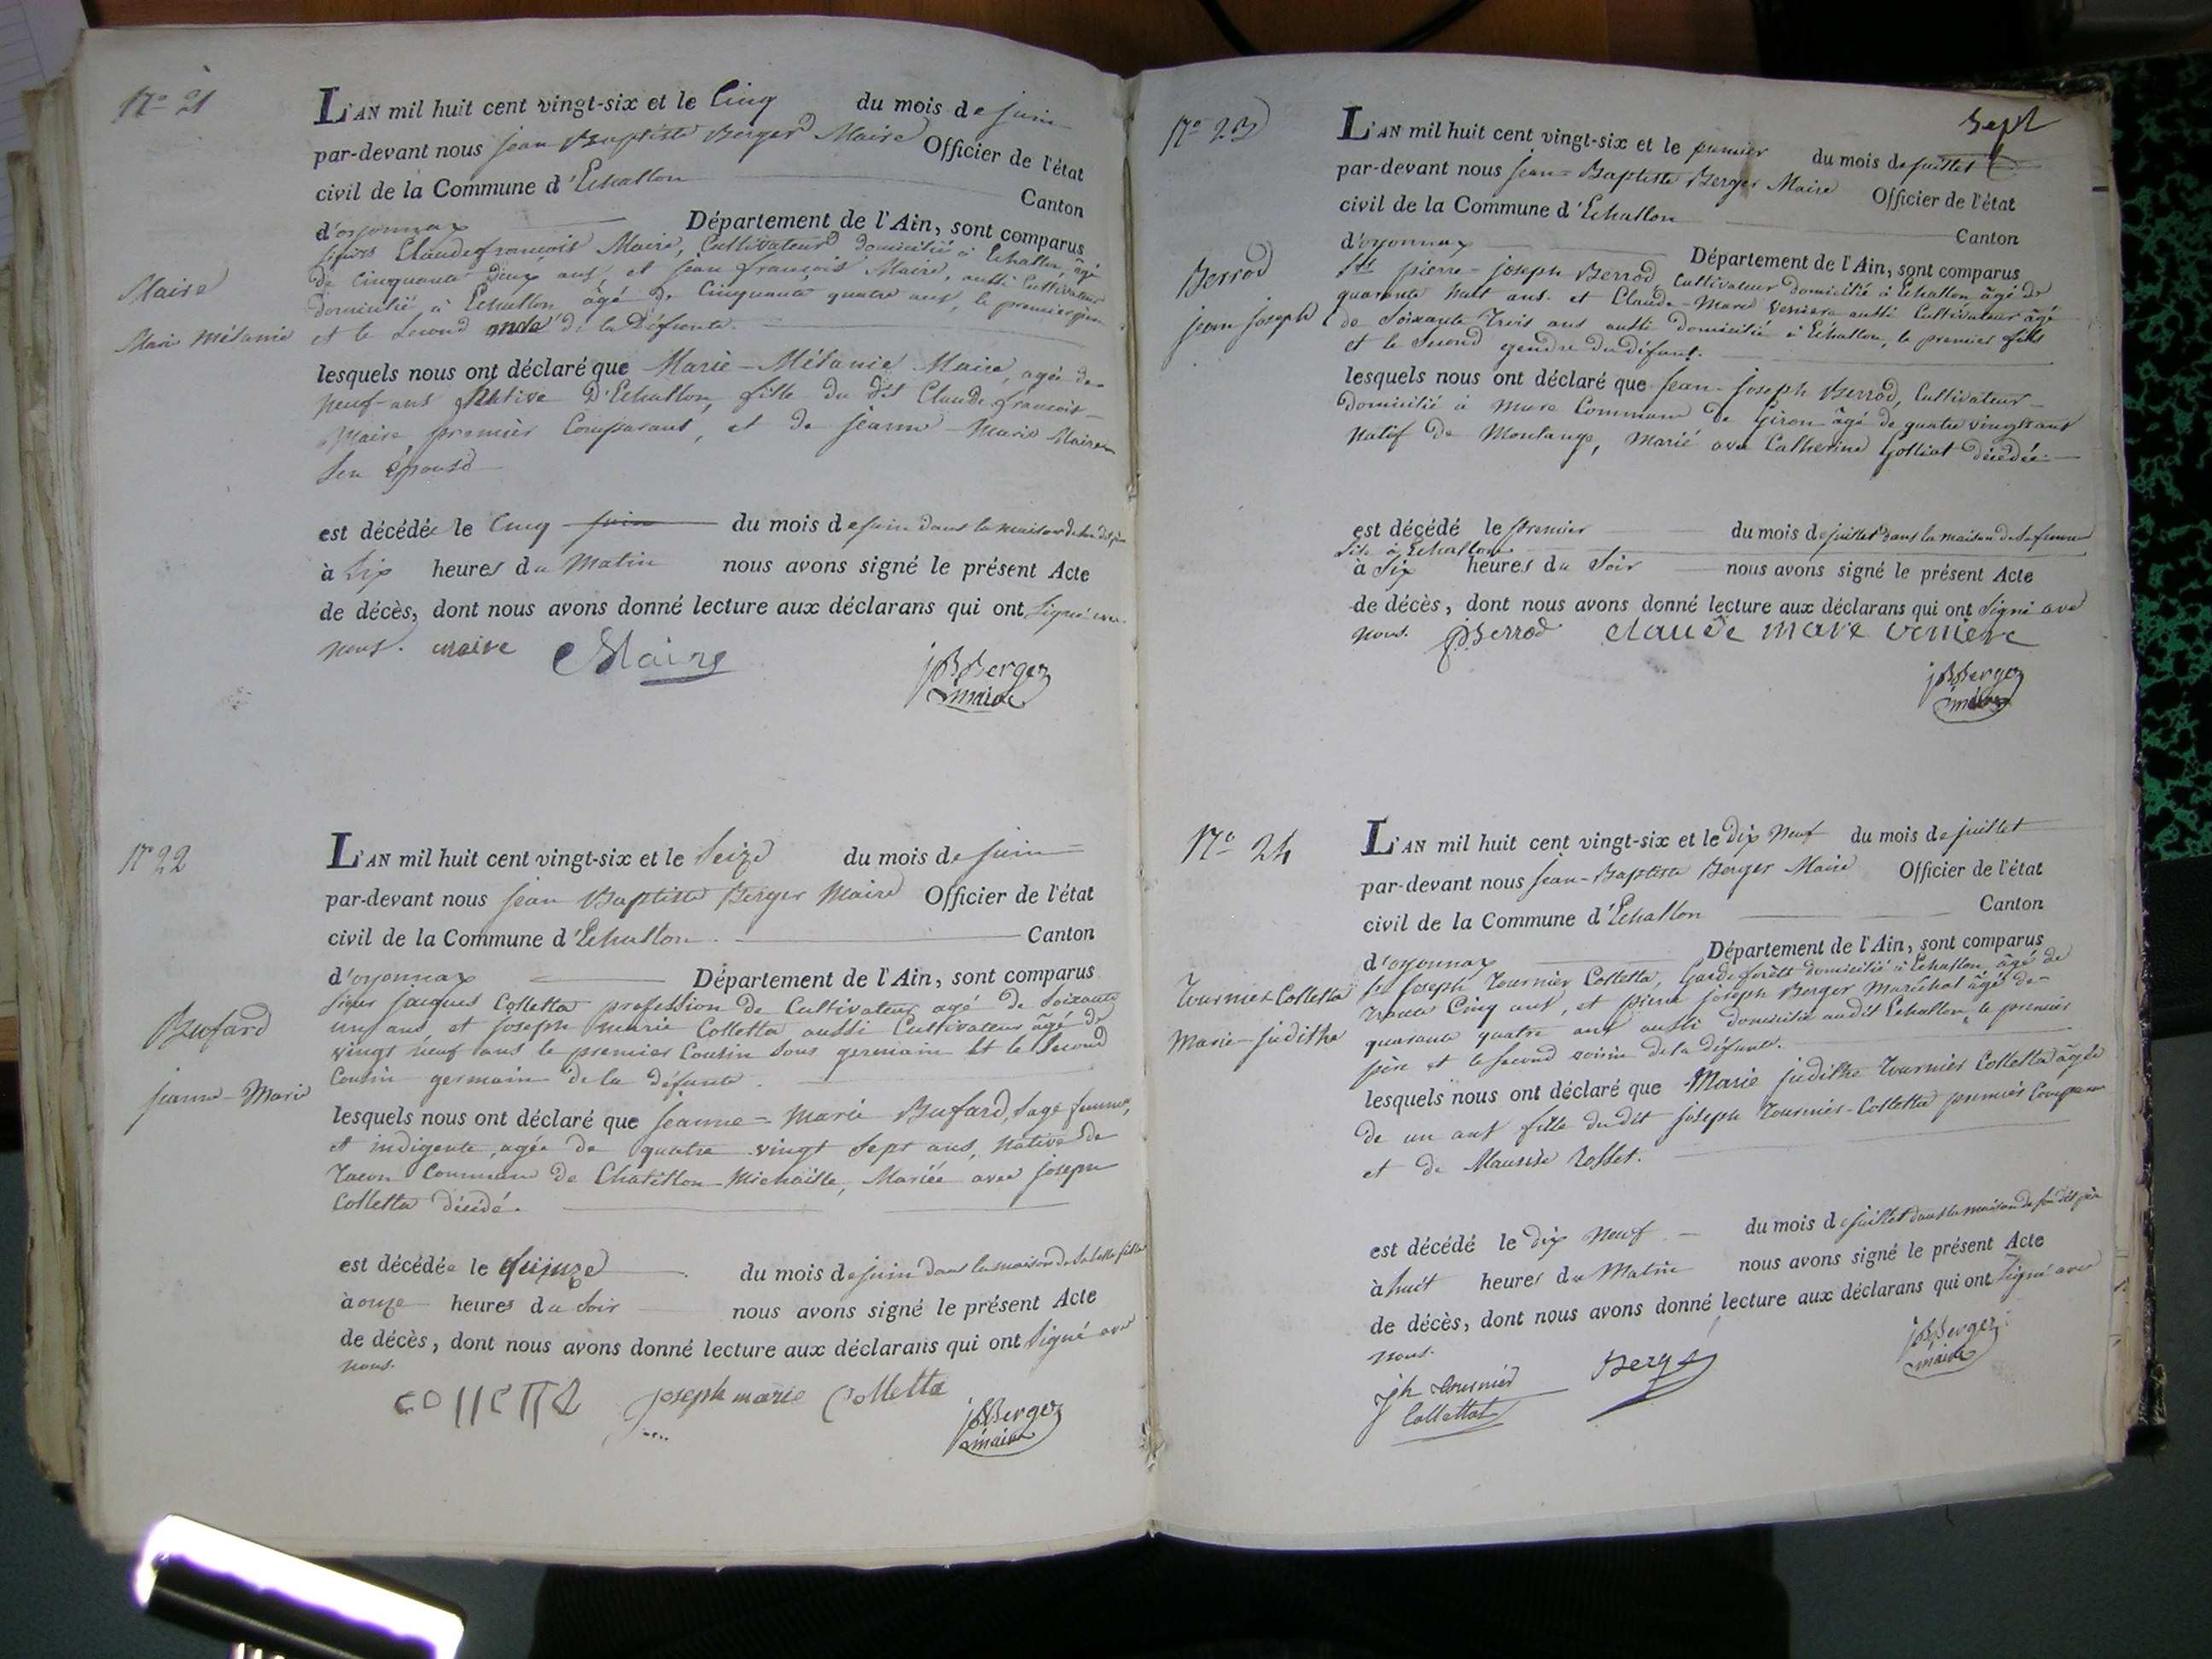 N.o 21
Maire
Marie Mélanie
L'AN mil huit cent vingt-six et le Cinq du mois de juin
par-devant nous jean Baptiste Berger Maire Officier de l'état
civil de la Commune d'Echallon Canton
d'oyonnax Département de l'Ain, sont comparus
sieurs Claude françois Maire, Cultivateur domicilié à Echallon, âgé
de Cinquante deux ans, et jean françois Maire, aussi Cultivateur
domicilié à Echallon âgé de Cinquante quatre ans, le premier père
et le second oncle de la Défunte.
lesquels nous ont déclaré que Marie-Mélanie Maire, agée de
neuf ans Native D'Echallon, fille du dit Claude françois
Maire, premier Comparant, et de jeanne-Marie Maire
son épouse
est décédée le Cinq juin du mois de juin dans la maison de son dit père
à dix heures du Matin nous avons signé le présent Acte
de décès, dont nous avons donné lecture aux déclarans qui ont signé avec
nous. maire Maire jB Berger
maire
N.o 22
Bufard
jeanne-Marie
L'AN mil huit cent vingt-six et le Seize du mois de juin
par-devant nous jean Baptiste Berger Maire Officier de l'état
civil de la Commune d'Echallon. Canton
d'oyonnax Département de l'Ain, sont comparus
sieur jacques Colletta profession de Cultivateur agé de Soixante
un ans et joseph marie Colletta aussi Cultivateur âgé de
vingt neuf ans le premier Cousin sous germain et le second
Cousin germain de la défunte.
lesquels nous ont déclaré que jeanne-Marie Bufard, sage femme,
et indigente, agée de quatre vingt sept ans, native de
Tacon Commune de Chatillon-Michaille, Mariée avec joseph
Colletta décédé.
est décédée le quinze du mois de juin dans la maison de sa belle fille
à onze heures du soir nous avons signé le présent Acte
de décès, dont nous avons donné lecture aux déclarans qui ont signé avec
nous.
colletta joseph marie Colletta jB Berger
maire
sept
N.o 23
Berrod
jean joseph
L'AN mil huit cent vingt-six et le premier du mois de juillet
par-devant nous jean-Baptiste Berger Maire Officier de l'état
civil de la Commune d'Echallon Canton
d'oyonnax Département de l'Ain, sont comparus
Srs pierre-joseph Berrod, Cultivateur domicilié à Echallon âgé de
quarante huit ans. et Claude-Marc Veniere aussi Cultivateur âgé
de Soixante Trois ans aussi domicilié à Echallon, le premier fils
et le second gendre du défunt.
lesquels nous ont déclaré que jean-joseph Berrod, Cultivateur
domicilié à Commune de Giron âgé de quatre vingts ans
Natif de Montange, Marié avec Catherine Golliat décédée.
est décédé le premier du mois de juillet dans la maison de sa femme
sise à Echallon
à Six heures du Soir nous avons signé le présent Acte
de décès, dont nous avons donné lecture aux déclarans qui ont signé avec
nous. Berrod claude marc veniere
jB Berger
maire
N.o 24
Tournier-Colletta
Marie-judithe
L'AN mil huit cent vingt-six et le dix Neuf du mois de juillet
par-devant nous jean-Baptiste Berger Maire Officier de l'état
civil de la Commune d'Echallon Canton
d'oyonnax Département de l'Ain, sont comparus
Srs joseph Tournier Colletta, Garde forêts domicilié à Echallon, âgé de
Trente Cinq ans, et pierre joseph Berger Maréchal âgé de
quarante quatre ans aussi domicilié audit Echallon, le premier
père et le second voisin de la défunte.
lesquels nous ont déclaré que Marie judithe Tournier Colletta âgée
de un ans fille dudit joseph Tournier-Colletta premier Comparant
et de Rosset.
est décédé le dix Neuf du mois de juillet dans la maison de son dit père
à huit heures du Matin nous avons signé le présent Acte
de décès, dont nous avons donné lecture aux déclarans qui ont signé avec
nous.
jh tournier Berger jB Berger
Collettat maire